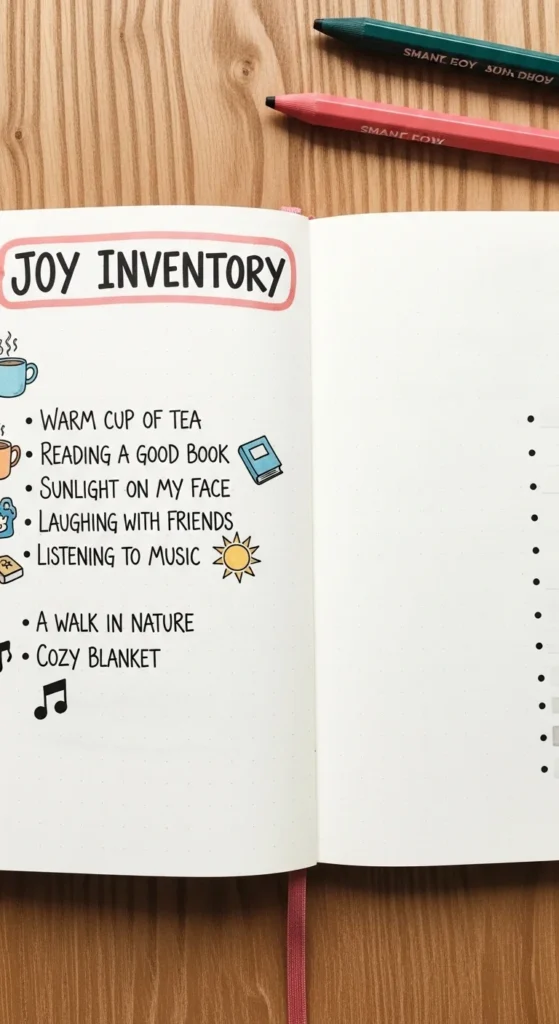 JOY INVENTORY
• WARM CUP OF TEA
• READING A GOOD BOOK
• SUNLIGHT ON MY FACE
• LAUGHING WITH FRIENDS
• LISTENING TO MUSIC
• A WALK IN NATURE
• COZY BLANKET